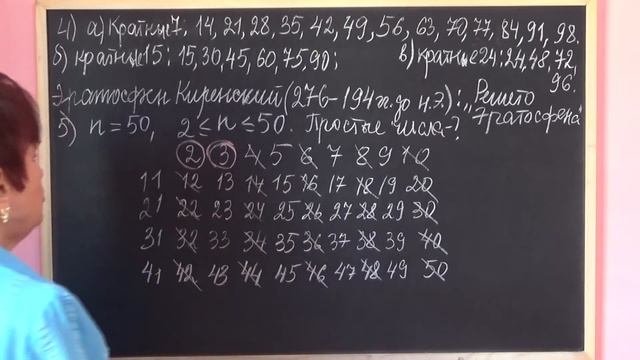 4) а) Кратные 7: 14, 21, 28, 35, 42, 49, 56, 63, 70, 77, 84, 91, 98.
б) кратные 15: 15, 30, 45, 60, 75, 90; в) кратные 24: 24, 48, 72, 96.
Эратосфен Киренский (276-194 гг. до н.э.): „Решето Эратосфена“
5) n = 50, 2 ≤ n ≤ 50. Простые числа-?
2 3 4 5 6 7 8 9 10
11 12 13 14 15 16 17 18 19 20
21 22 23 24 25 26 27 28 29 30
31 32 33 34 35 36 37 38 39 40
41 42 43 44 45 46 47 48 49 50